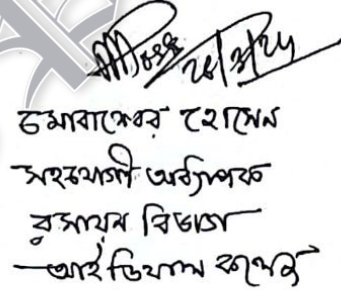 মোবাশ্বের হোসেন
সহযোগী অধ্যাপক
রসায়ন বিভাগ
আইডিয়াল কলেজ